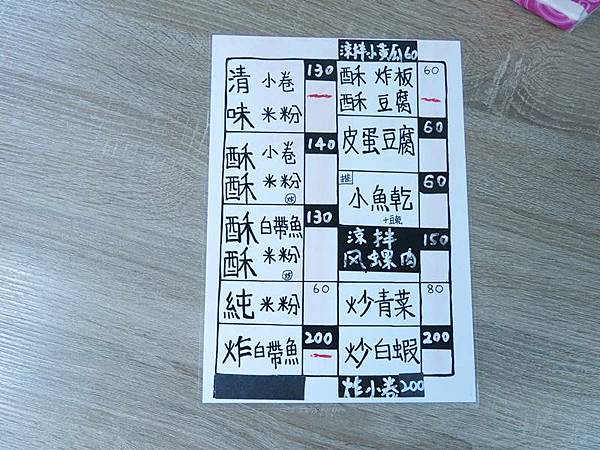 涼拌小黃瓜60
清 小卷 130
味 米粉
酥 小卷 140
酥 米粉 炒
酥 白帶魚 130
酥 米粉 炒
純 米粉 60
炸 白帶魚 200
酥 炸板 60
酥 豆腐
皮蛋豆腐 60
推 小魚乾 60
+豆乾
涼拌 150
风螺肉
炒青菜 80
炒白蝦 200
炸小卷200